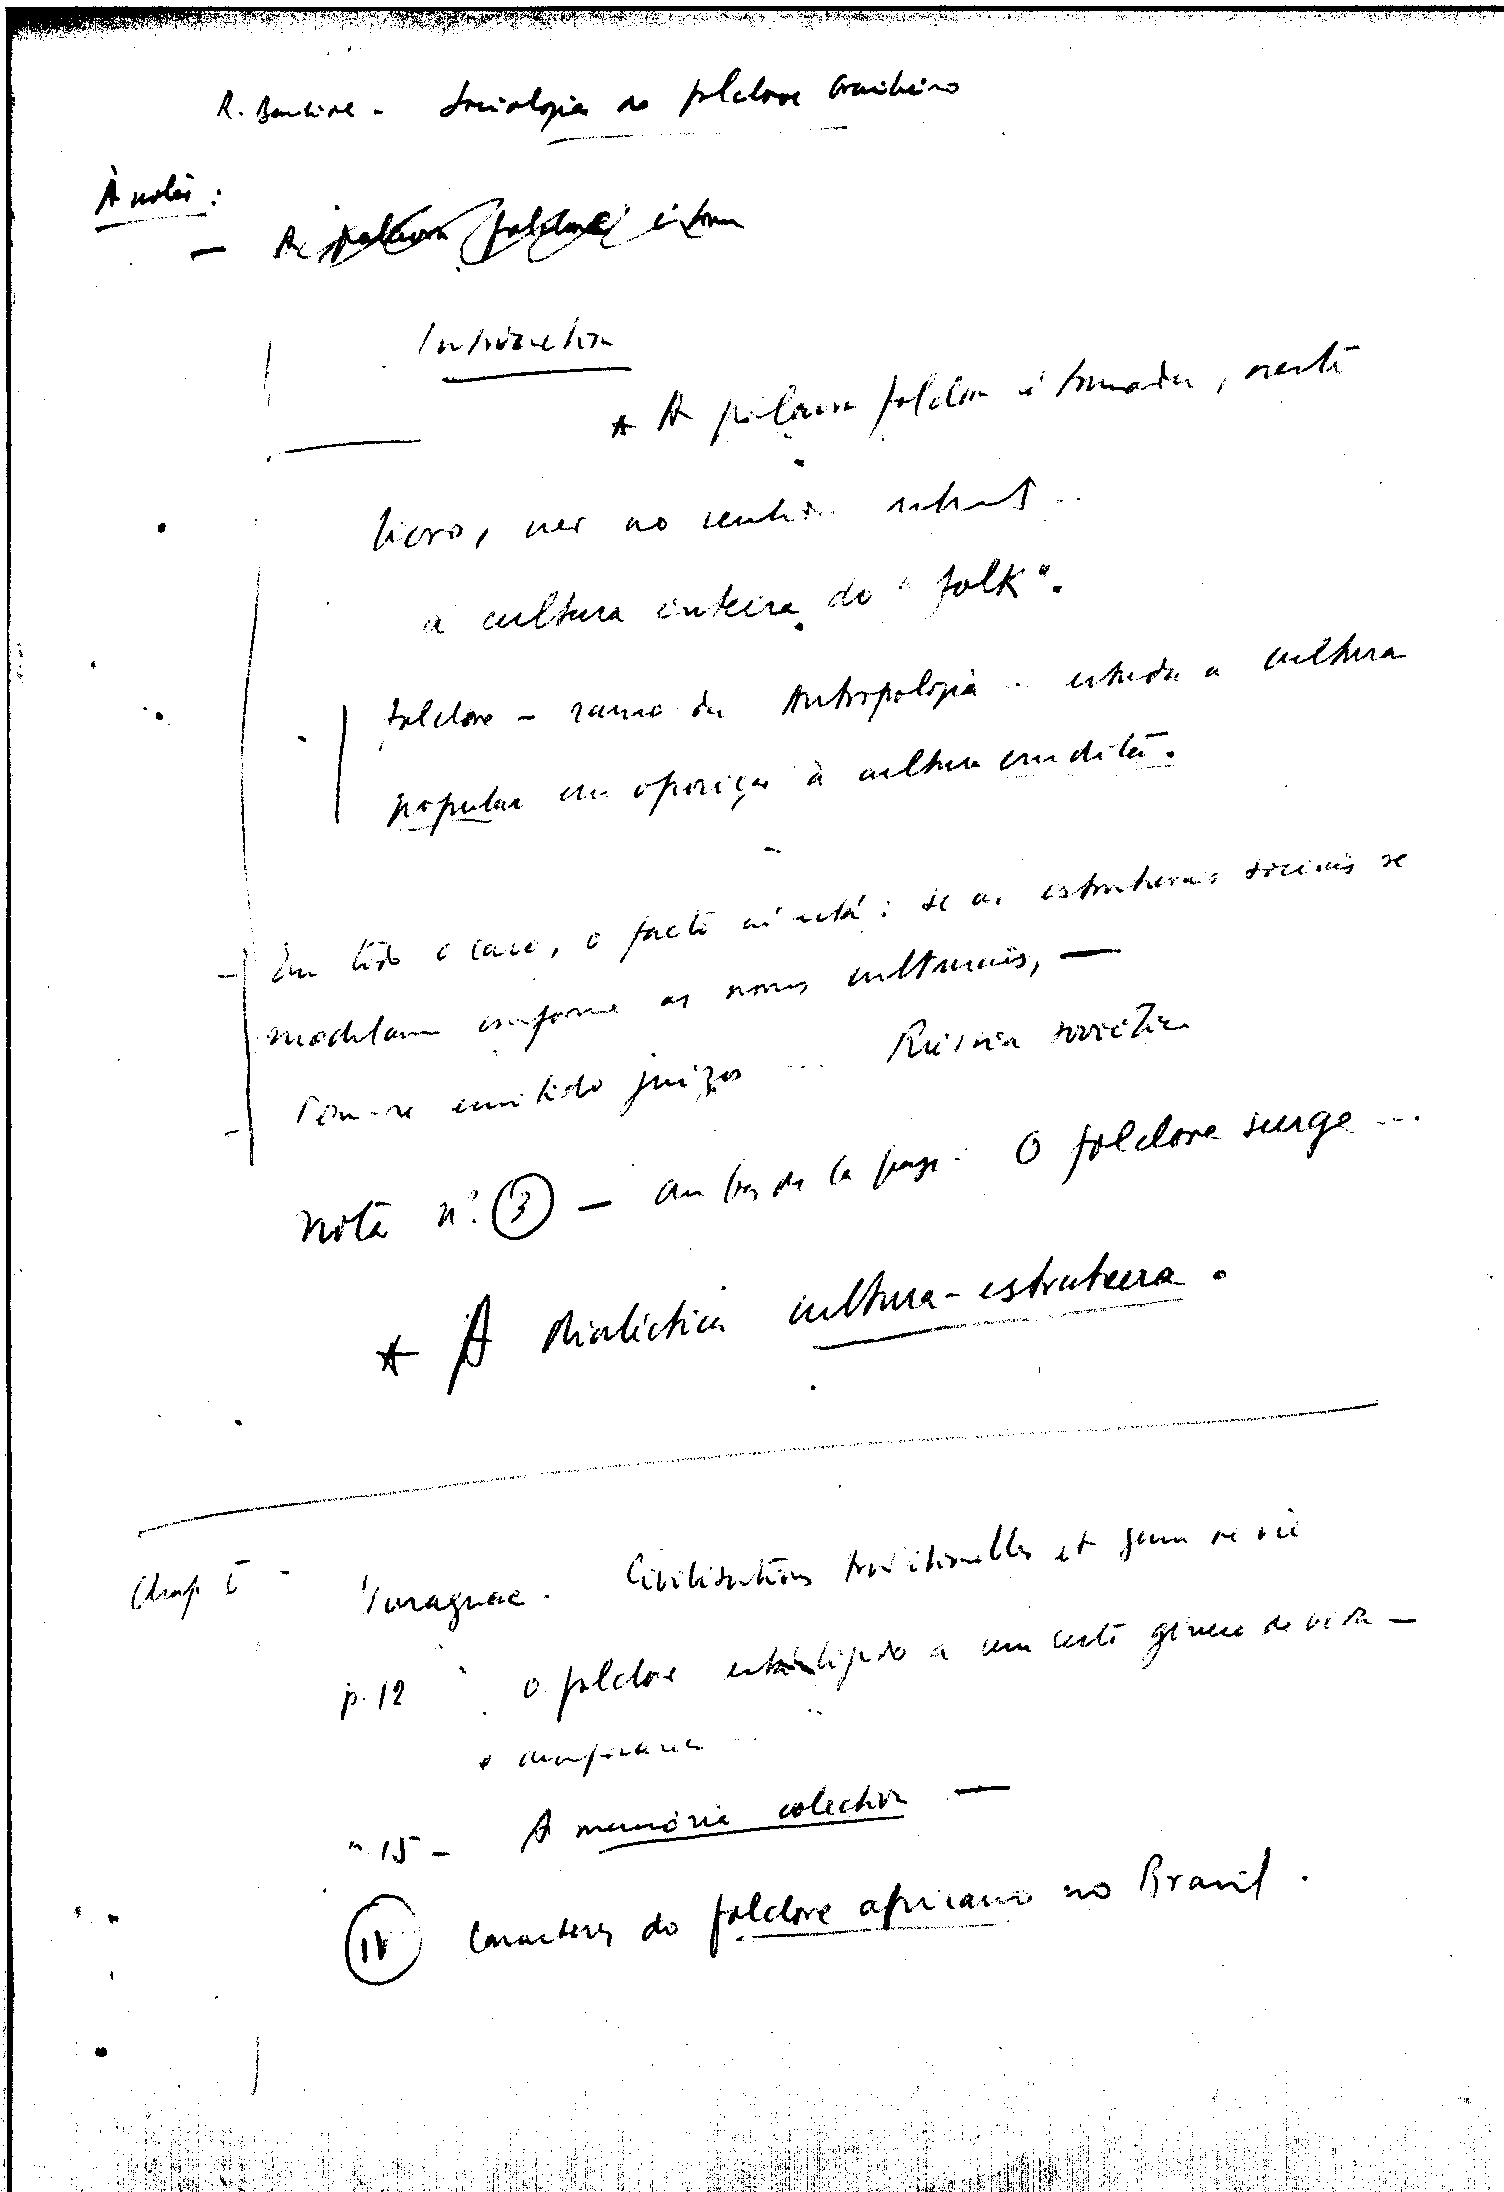 R. Bastide - Sociologia do folclore brasileiro
A noter :
— A palavra folclore é tom
Introduction
* A palavra folclore é tomada, neste
livro, não no sentido
a cultura inteira do "folk".
folclore - ramo da Antropologia - estuda a cultura
popular em oposição à cultura erudita.
- Em todo o caso, o facto aí está : se as estruturas sociais se
modelam conforme as normas culturais, —
- Tem-se emitido juízos ... Rússia soviética
Nota nº. 3 — au bas de la page. O folclore surge ...
* A dialéctica cultura-estrutura.
Chap I - Varagnac. Civilisations traditionnelles et genre de vie
p. 12 O folclore está ligado a um certo género de vida —
" 15 - A memória colectiva —
IV Caracteres do folclore africano no Brasil.